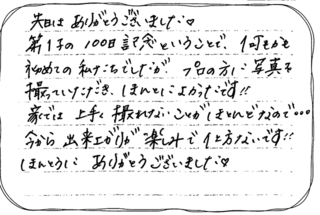 先日は ありがとうございました♡
第1子の 100日記念ということで、何もかも
初めての私たちでしたが プロの方に写真を
撮っていただき、ほんとによかったです!!
家では 上手く撮れないことがほとんどなので…
今から 出来上がりが 楽しみで仕方ないです!!
ほんとうに ありがとうございました♡